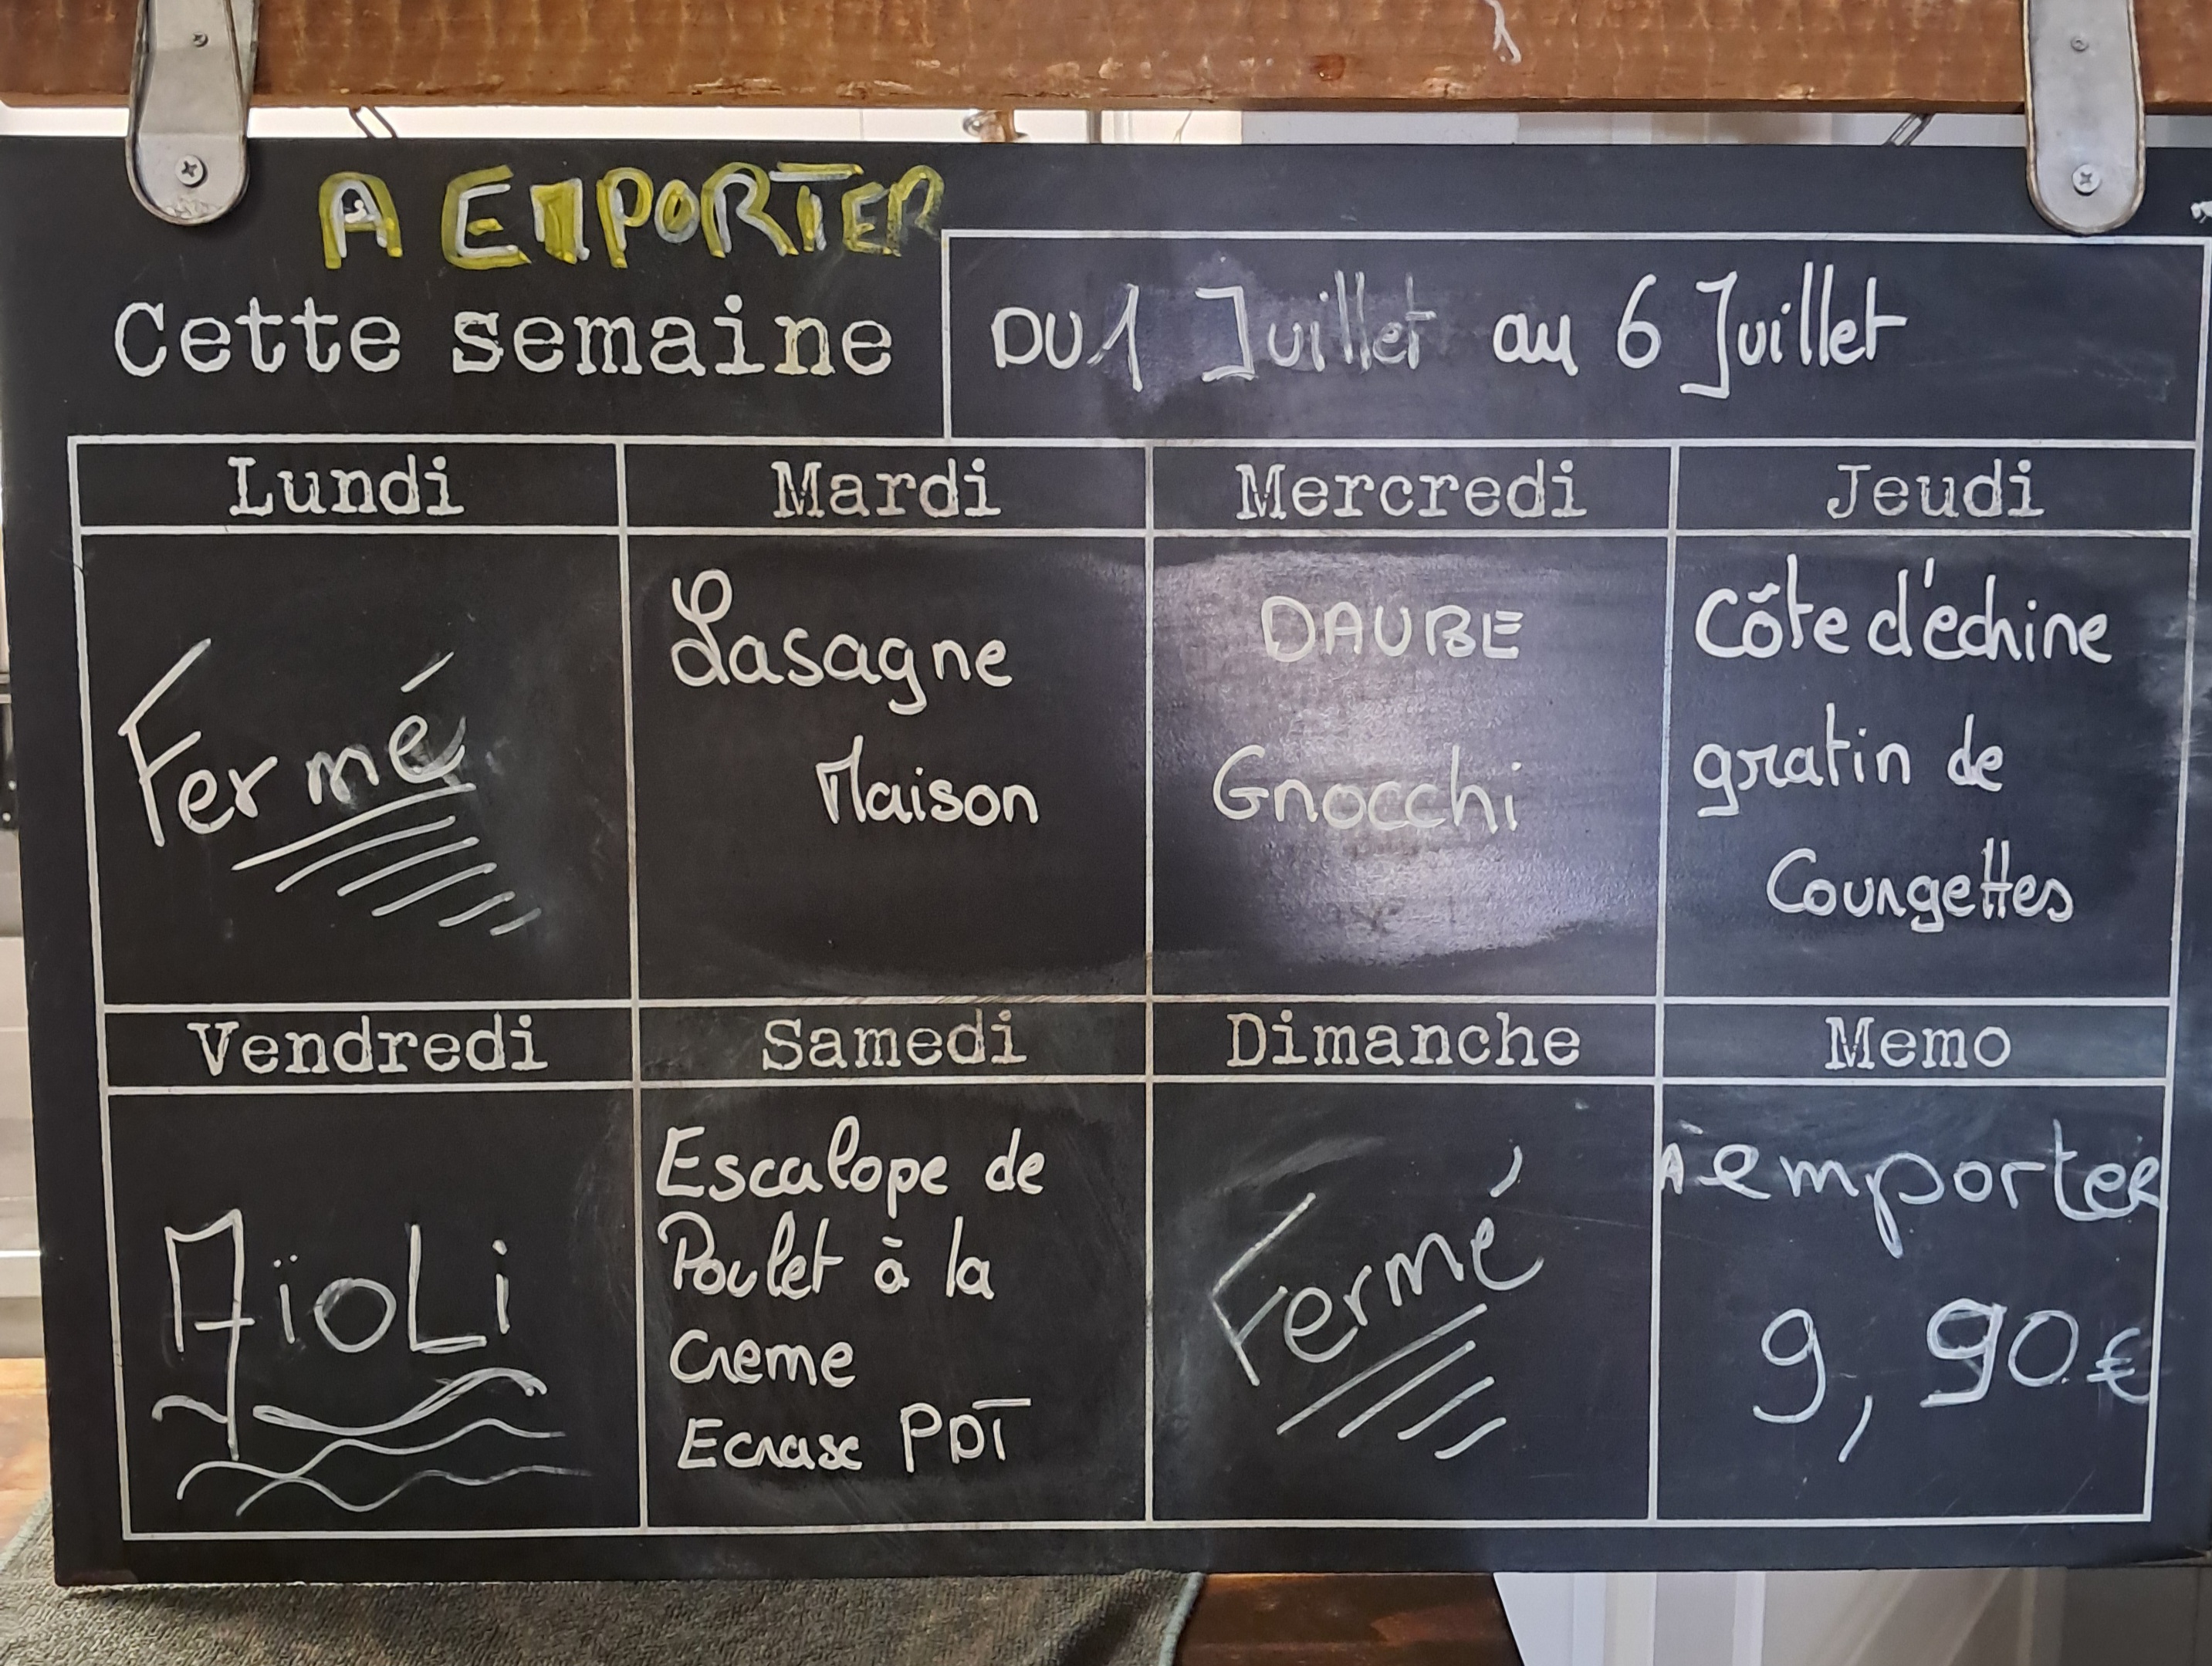 A EMPORTER
Cette semaine
DU 1 Juillet au 6 Juillet
Lundi
Mardi
Mercredi
Jeudi
Fermé
Lasagne
Maison
DAUBE
Gnocchi
Côte d'échine
gratin de
Courgettes
Vendredi
Samedi
Dimanche
Memo
AïoLi
Escalope de
Poulet à la
Creme
Ecrase PDT
Fermé
A emporter
9,90€